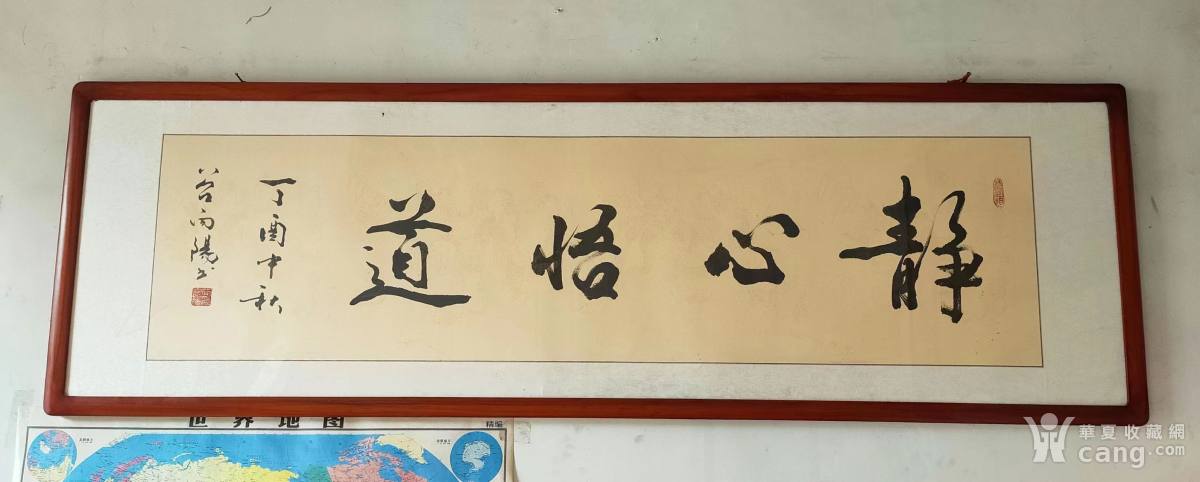 静心悟道
丁酉中秋
谷向陽书
世界地图
精编
華夏收藏網
cang.com